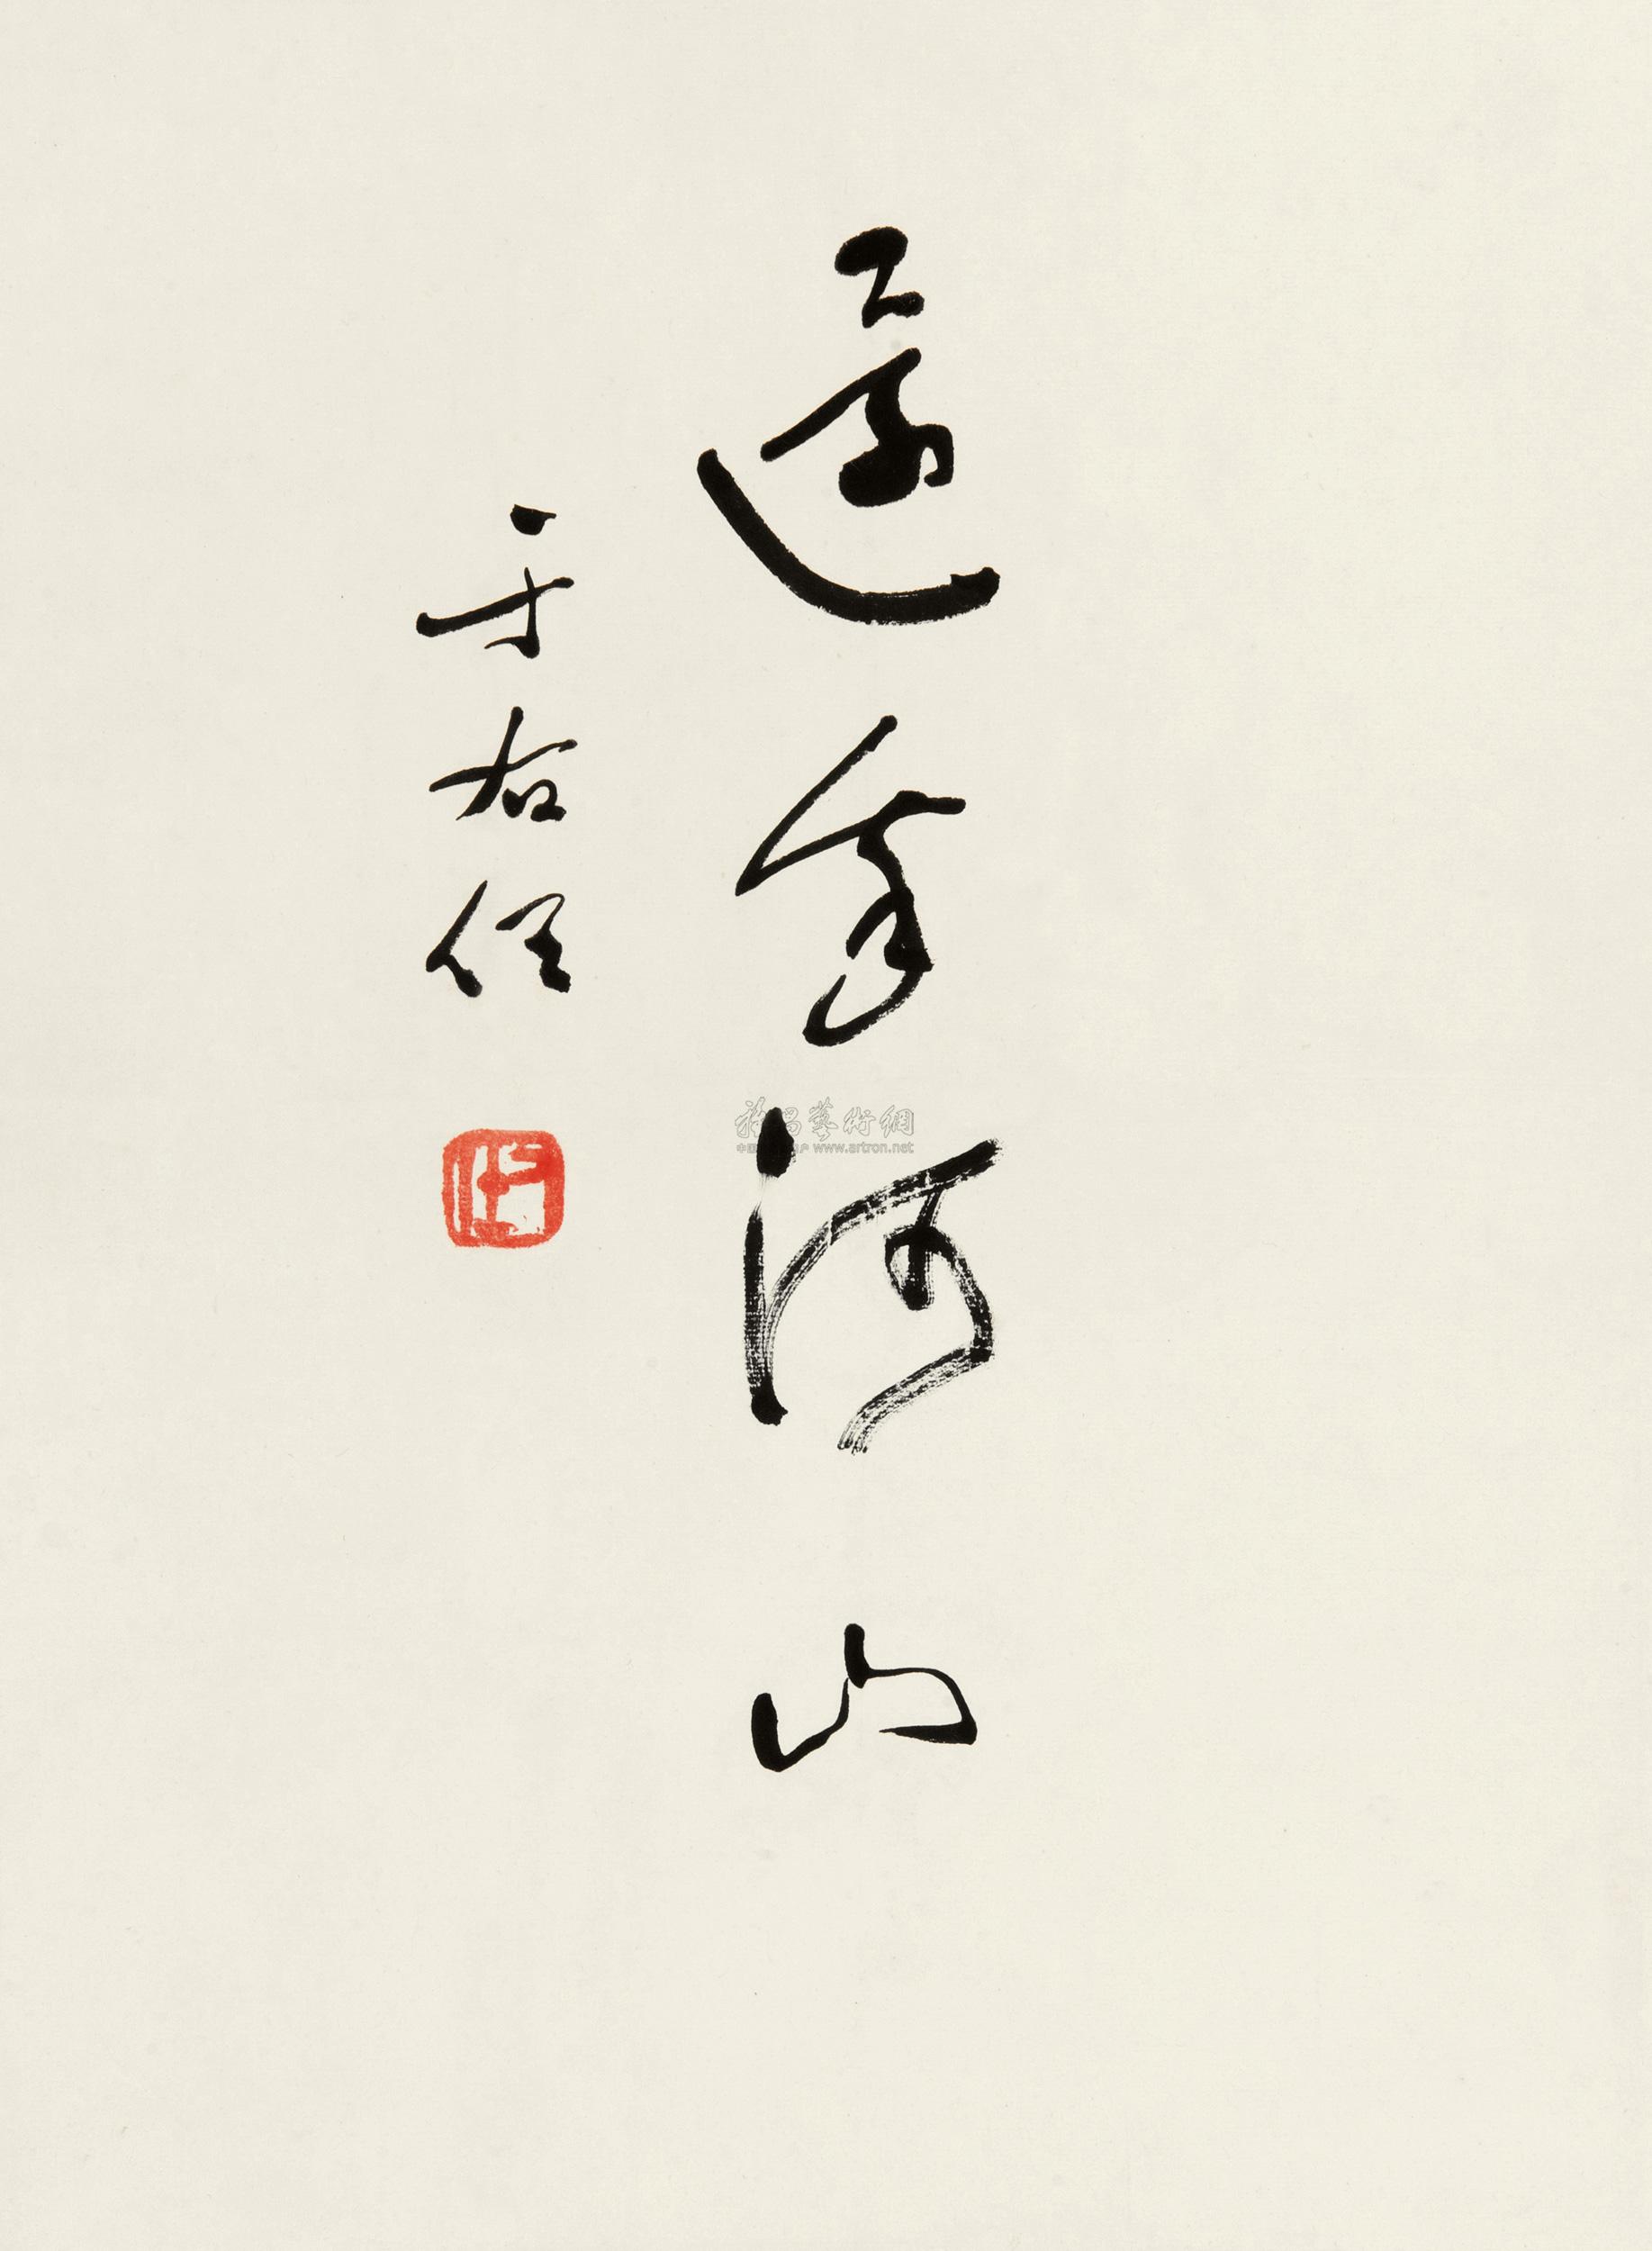 還我河山
于右任
雅昌藝術網
www.artron.net